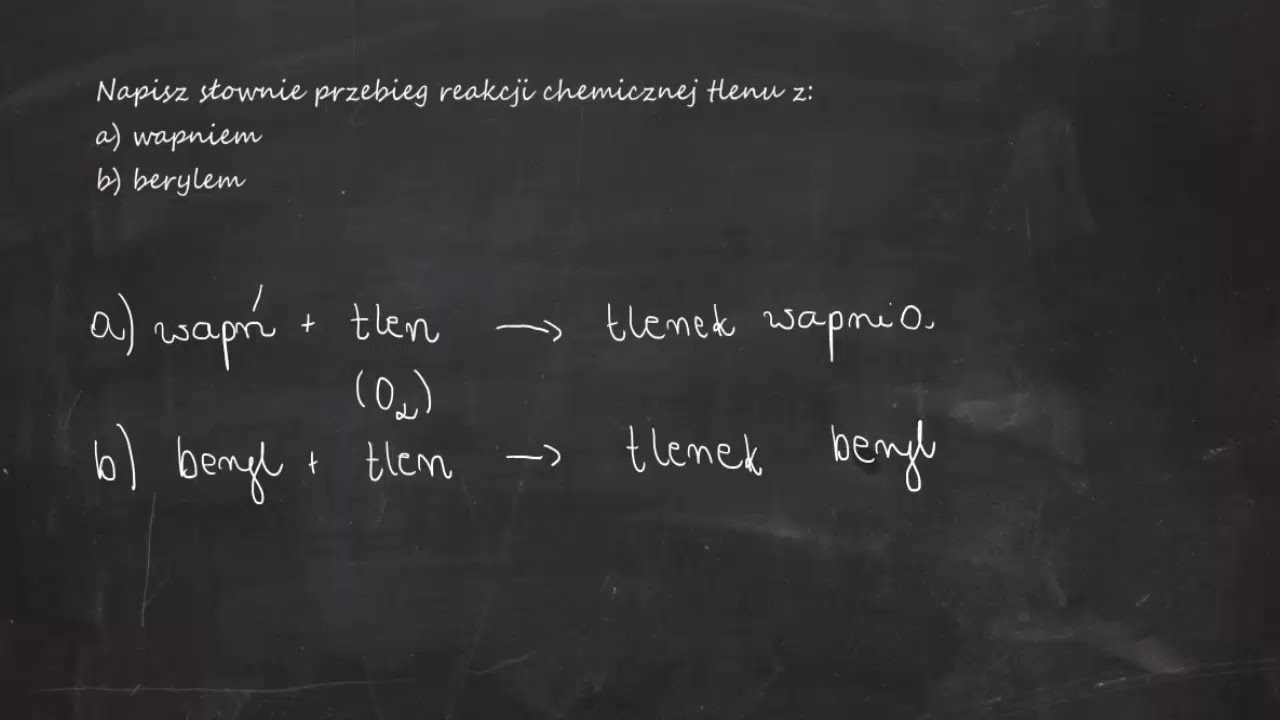 Napisz słownie przebieg reakcji chemicznej tlenu z:
a) wapniem
b) berylem
a) wapń + tlen → tlenek wapnia.
(O₂)
b) beryl + tlen → tlenek beryl